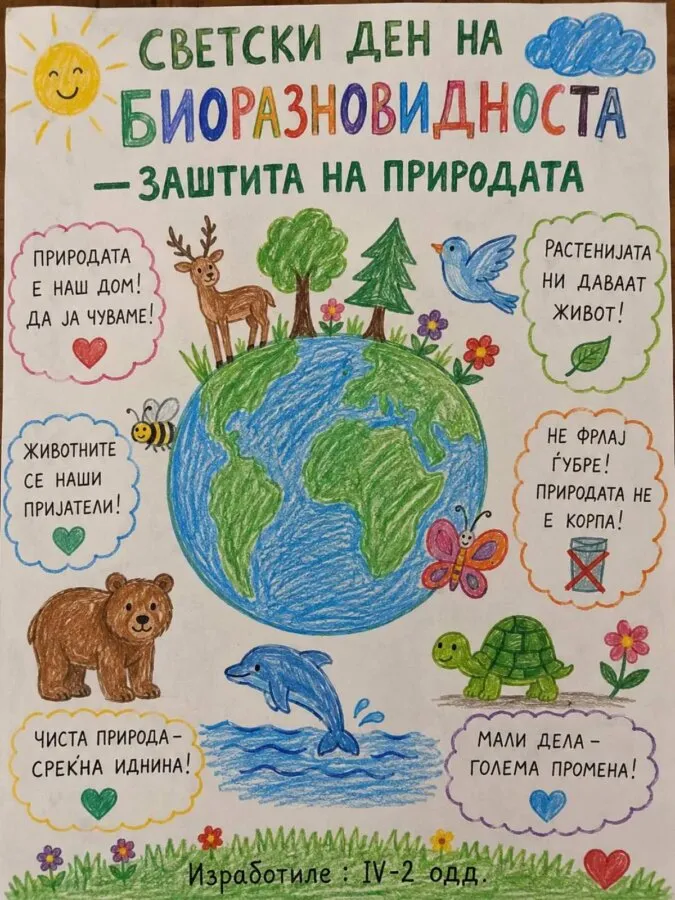 СВЕТСКИ ДЕН НА
БИОРАЗНОВИДНОСТА
– ЗАШТИТА НА ПРИРОДАТА
ПРИРОДАТА
Е НАШ ДОМ!
ДА ЈА ЧУВАМЕ!
РАСТЕНИЈАТА
НИ ДАВААТ
ЖИВОТ!
ЖИВОТНИТЕ
СЕ НАШИ
ПРИЈАТЕЛИ!
НЕ ФРЛАЈ
ЃУБРЕ!
ПРИРОДАТА НЕ
Е КОРПА!
ЧИСТА ПРИРОДА–
СРЕЌНА ИДНИНА!
МАЛИ ДЕЛА –
ГОЛЕМА ПРОМЕНА!
Изработиле : IV-2 одд.